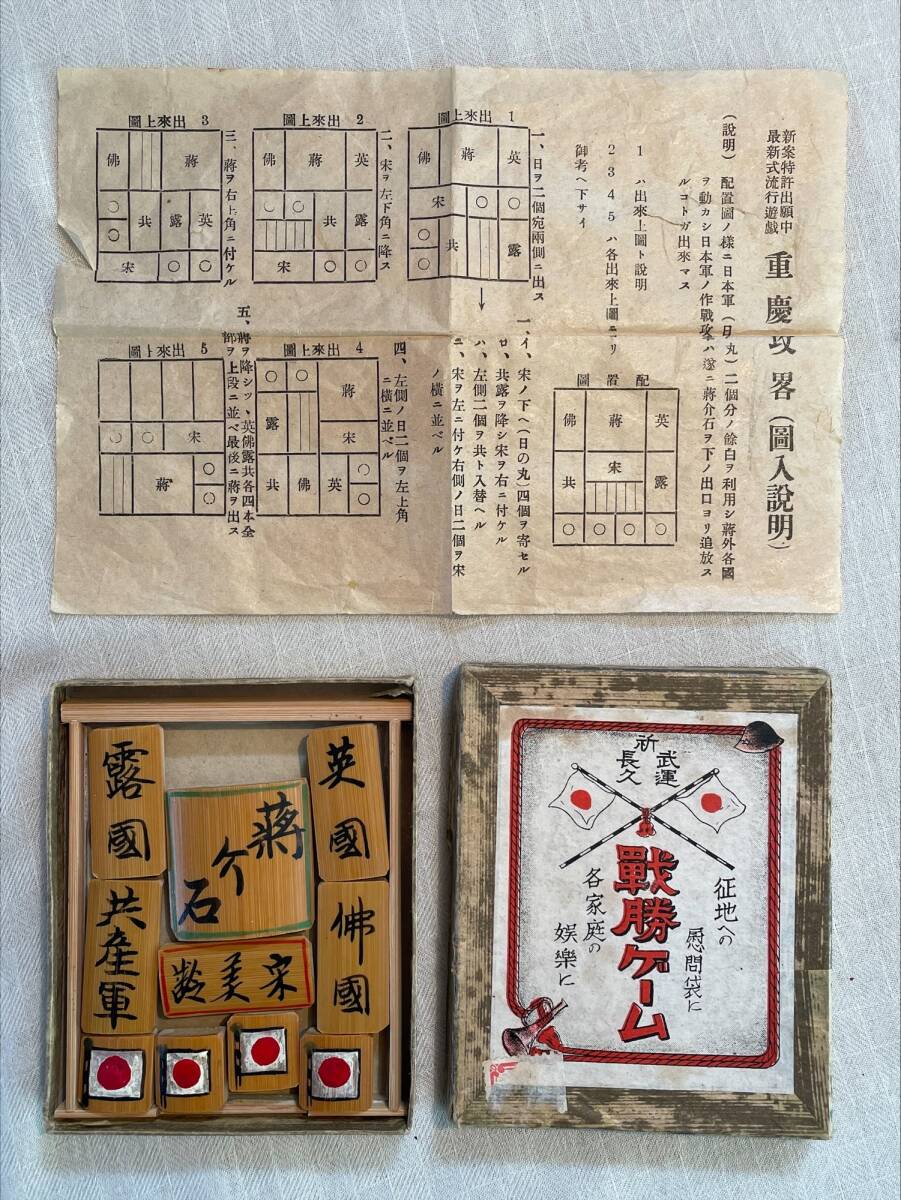 新案特許出願中
最新式流行遊戯
重慶攻畧(圖入說明)
(說明) 配置圖ノ樣ニ日本軍(日丸)二個分ノ餘白ヲ利用シ蔣外各國
ヲ動カシ日本軍ノ作戰攻擊ハ遂ニ蔣介石ヲ下ノ出口ヨリ追放ス
ルコトガ出來マス
1 ハ出來上圖ト說明
2 3 4 5 ハ各出來上圖ニヨリ
御考ヘ下サイ
配置圖
英
蔣
佛
宋
露
共
○ ○ ○ ○
一、日ヲ二個宛兩側ニ出ス
1 出來上圖
英
蔣
佛
○ ○
宋
露
共
○
○
二、宋ヲ左下角ニ降ス
2 出來上圖
英
蔣
佛
露
共
○
○
○
○
宋
三、蔣ヲ右上角ニ付ケル
3 出來上圖
蔣
佛
英
露
共
○
○
○ ○
宋
一、イ、宋ノ下ヘ(日の丸)四個ヲ寄セル
ロ、共露ヲ降シ宋ヲ右ニ付ケル
ハ、左側二個ヲ共ト入替ヘル
ニ、宋ヲ左ニ付ケ右側ノ日二個ヲ宋
ノ橫ニ並ベル
四、左側ノ日二個ヲ左上角
ニ橫ニ並ベル
4 出來上圖
蔣
○ ○
露
宋
○ ○
英
佛
共
五、蔣ヲ降シツヽ英佛露共各四本全
部ヲ上段ニ並ベ最後ニ蔣ヲ出ス
5 出來上圖
宋
○ ○
○
○
蔣
露國
英國
蔣介石
共產軍
佛國
宋美齡
祈
武運
長久
戰勝ゲーム
征地への
慰問袋に
各家庭の
娛樂に